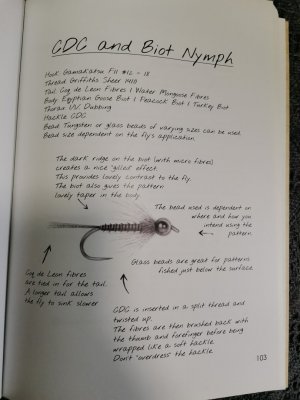 CDC and Biot Nymph
Hook Gamakatsu F11 #12 - 18
Thread Griffiths Sheer 14/0
Tail Coq de Leon Fibres | Water Mongoose Fibres
Body Egyptian Goose Biot | Peacock Biot | Turkey Biot
Thorax UV Dubbing
Hackle CDC
Bead Tungsten or glass beads of varying sizes can be used.
Bead size dependent on the fly's application.
The dark ridge on the biot (with micro fibres)
creates a nice 'gilled' effect.
This provides lovely contrast to the fly.
The biot also gives the pattern
lovely taper in the body.
The bead used is dependent on
where and how you
intend using the
pattern.
Glass beads are great for patterns
fished just below the surface
Coq de Leon fibres
are tied in for the tail.
A longer tail allows
the fly to sink slower
CDC is inserted in a split thread and
twisted up.
The fibres are then brushed back with
the thumb and forefinger before being
wrapped like a soft hackle.
Don't "overdress" the hackle
103